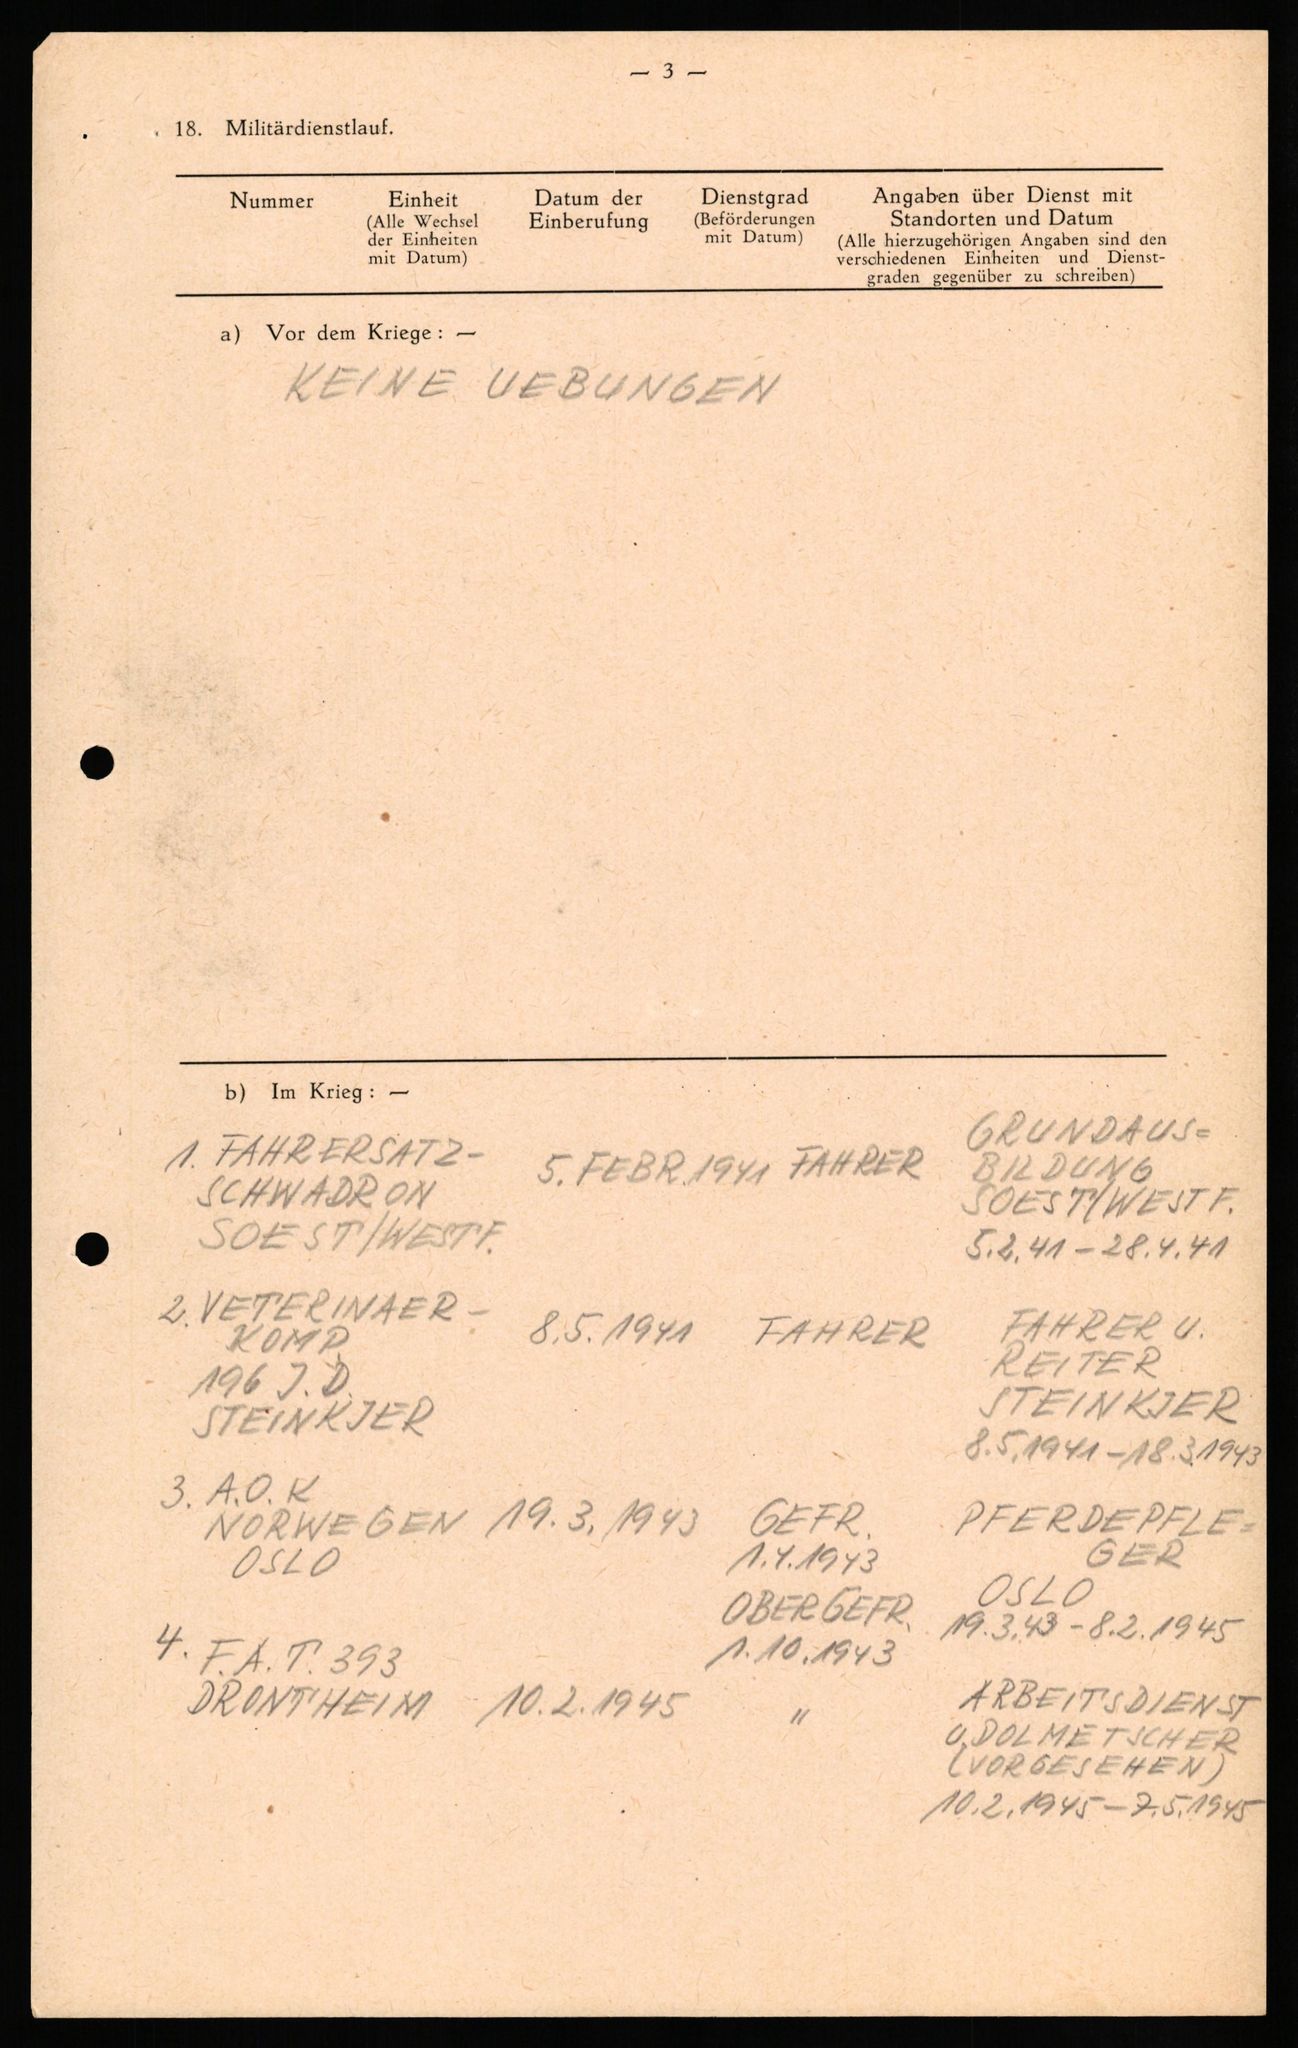 — 3 —
18. Militärdienstlauf.
Nummer
Einheit
(Alle Wechsel
der Einheiten
mit Datum)
Datum der
Einberufung
Dienstgrad
(Beförderungen
mit Datum)
Angaben über Dienst mit
Standorten und Datum
(Alle hierzugehörigen Angaben sind den
verschiedenen Einheiten und Dienst-
graden gegenüber zu schreiben)
a) Vor dem Kriege: —
KEINE UEBUNGEN
b) Im Krieg: —
1. FAHRERSATZ-
SCHWADRON
SOEST/WESTF.
5. FEBR. 1941
FAHRER
GRUNDAUS=
BILDUNG
SOEST/WESTF.
5.2.41 – 28.4.41
2. VETERINAER-
KOMP.
196 J.D.
STEINKJER
8.5.1941
FAHRER
FAHRER U.
REITER
STEINKJER
8.5.1941 – 18.3.1943
3. A.O.K
NORWEGEN
OSLO
19.3.1943
GEFR.
1.4.1943
OBERGEFR.
1.10.1943
PFERDEPFLE=
GER
OSLO
19.3.43 – 8.2.1945
4. F.A.T. 393
DRONTHEIM
10.2.1945
"
ARBEITSDIENST
U. DOLMETSCHER
(VORGESEHEN)
10.2.1945 – 7.5.1945